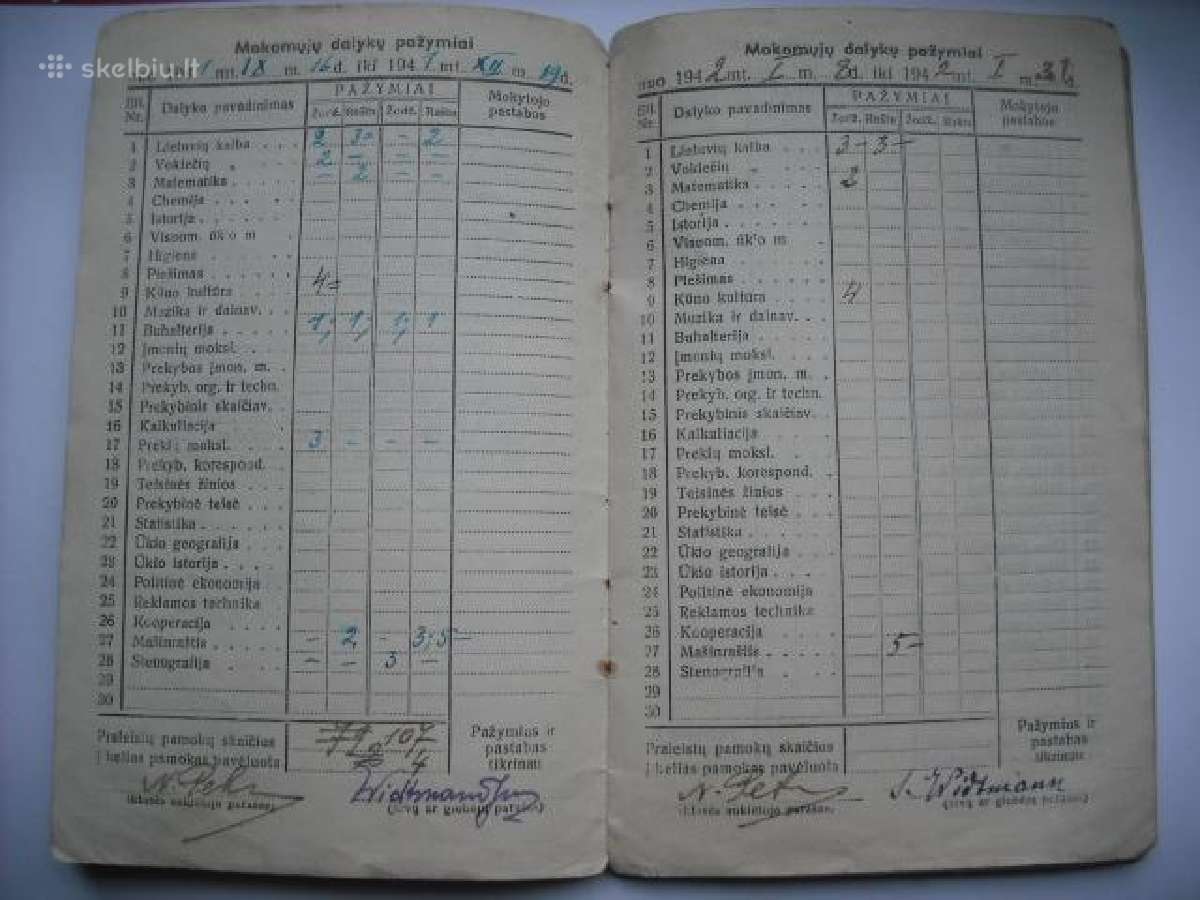 skelbiu.lt
Mokomųjų dalykų pažymiai
mt. IX m. 16 d. iki 1941 mt. XII m. 19 d.
Eil. Nr. Dalyko pavadinimas PAŽYMIAI Mokytojo pastabos
Žodž. Raštu Žodž. Raštu
1 Lietuvių kalba . . . 2 3= - 2
2 Vokiečių „ 2 - - -
3 Matematika . . . . - 2 - -
4 Chemija . . . . .
5 Istorija . . . . . .
6 Visuom. ūkio m .
7 Higiena . . . . .
8 Piešimas . . . . . .
9 Kūno kultūra . . . 4=
10 Muzika ir dainav. . .
11 Buhalterija . . . . . 1; 1; 1; 1
12 Įmonių moksl. . . .
13 Prekybos įmon. m. .
14 Prekyb. org. ir techn.
15 Prekybinis skaičiav. .
16 Kalkuliacija . . . .
17 Prekių moksl. . . . 3 - - -
18 Prekyb. korespond. . .
19 Teisinės žinios . . .
20 Prekybinė teisė . . .
21 Statistika . . . . . .
22 Ūkio geografija . . .
23 Ūkio istorija . . . .
24 Politinė ekonomija
25 Reklamos technika
26 Kooperacija . . . .
27 Mašinraštis . . . . . - 2 - 3;5-
28 Stenografija . . . . - - 3 -
29
30
Praleistų pamokų skaičius 107
Į kelias pamokas pavėluota 4
Pažymius ir pastabas tikrinau
N. Petr
(klasės auklėtojo parašas)
Widtmann
(tėvų ar globėjų parašas)
Mokomųjų dalykų pažymiai
nuo 1942 mt. I m. 8 d. iki 1942 mt. I m. 31 d.
Eil. Nr. Dalyko pavadinimas PAŽYMIAI Mokytojo pastabos
Žodž. Raštu Žodž. Raštu
1 Lietuvių kalba . . . 3- 3-
2 Vokiečių „ . . .
3 Matematika . . . . 2
4 Chemija . . . . .
5 Istorija . . . . . .
6 Visuom. ūkio m .
7 Higiena . . . . .
8 Piešimas . . . . . .
9 Kūno kultūra . . . 4
10 Muzika ir dainav. . .
11 Buhalterija . . . . .
12 Įmonių moksl. . . .
13 Prekybos įmon. m. .
14 Prekyb. org. ir techn.
15 Prekybinis skaičiav. .
16 Kalkuliacija . . . .
17 Prekių moksl. . . .
18 Prekyb. korespond. .
19 Teisinės žinios . . .
20 Prekybinė teisė . . .
21 Statistika . . . . .
22 Ūkio geografija . . .
23 Ūkio istorija . . . .
24 Politinė ekonomija
25 Reklamos technika
26 Kooperacija . . . .
27 Mašinraštis . . . . . 5-
28 Stenografija . . . .
29
30
Praleistų pamokų skaičius
Į kelias pamokas pavėluota
Pažymius ir pastabas tikrinau
N. Petr
(klasės auklėtojo parašas)
Widtmann
(tėvų ar globėjų parašas)